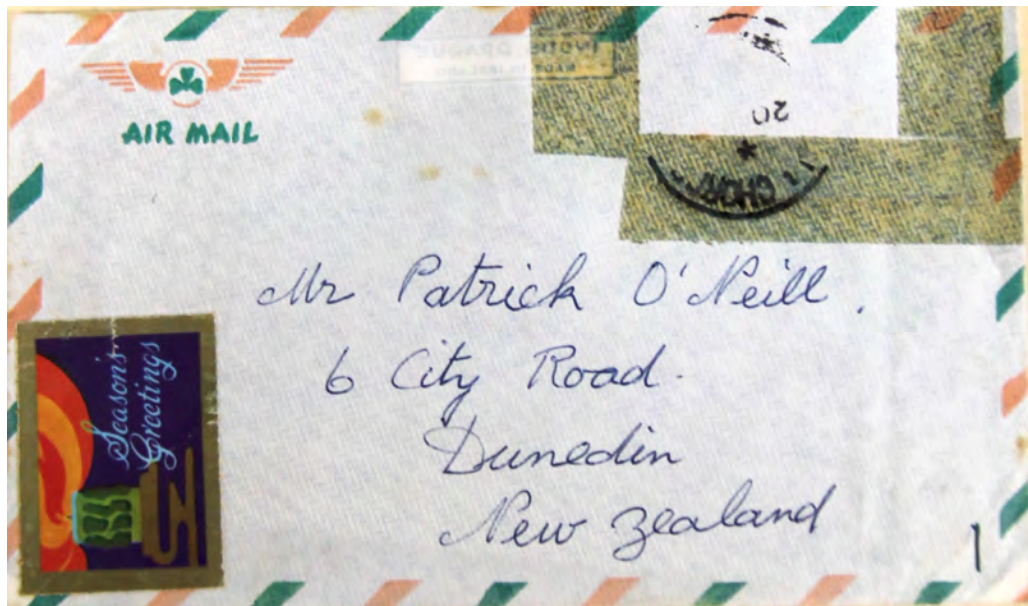 AIR MAIL
20
Mr Patrick O'Neill.
6 City Road.
Dunedin
New Zealand
Season's
Greetings
1